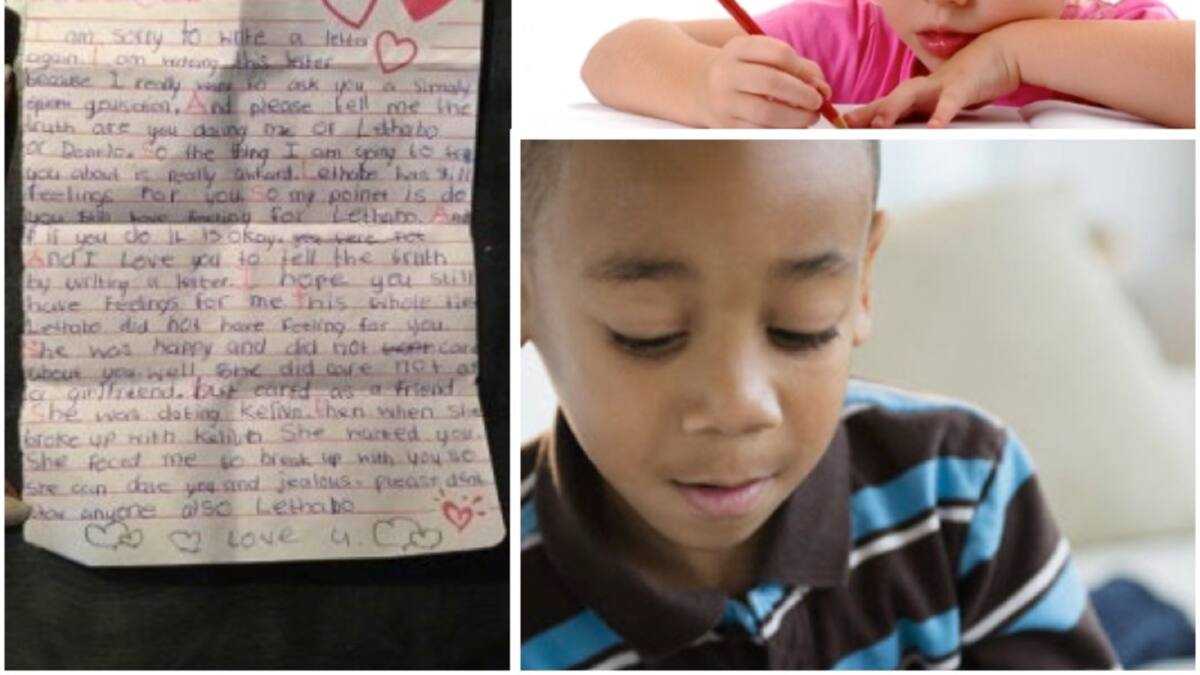 I am sorry to write a letter
again. I am writing this later
because I really want to ask you a simaly
question. And please tell me the
truth are you dating me or Lethabo
or So the thing I am going to
you about is really Lethabo has still
feelings for you. So my poinet is do
you still have feeling for Lethabo. And
if you do it is okay. you were not
And I Love you to tell the truth
by writing a later. I hope you still
have feelings for me. This whole
Lethabo did not have feeling for you
She was happy and did not care
about you well she did care not as
a girlfreend. but cared as a friend
She was dating Kelivn then when she
broke up with Kelivn She wanted you.
She foced me to break up with you so
she can date you and jealous. please dont
anyone also Lethabo
Love u.